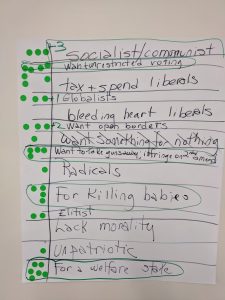 +3
Socialist/communist
Want unrestricted voting
tax + spend liberals
+1 Globalists
bleeding heart liberals
+2 Want open borders
Want something for nothing
Want to take guns away, infringe on 2nd amend
Radicals
For killing babies
Elitist
Lack morality
Unpatriotic
For a welfare state